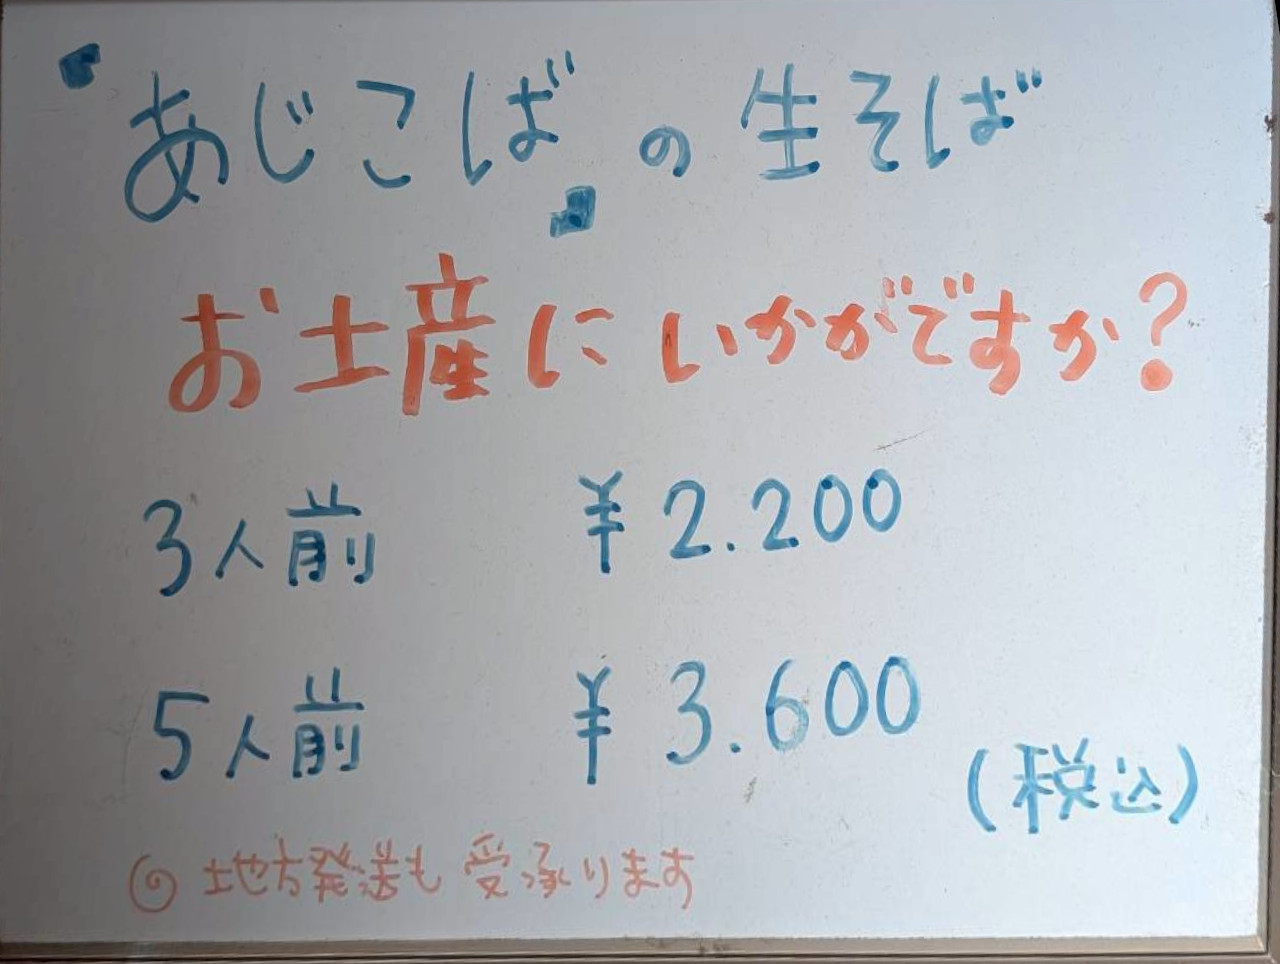 "あじこば"の生そば
お土産にいかがですか?
3人前 ¥2.200
5人前 ¥3.600
(税込)
◎ 地方発送も受承ります